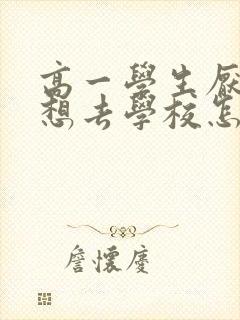 高一學生厭
想去學校怎
詹懷慶